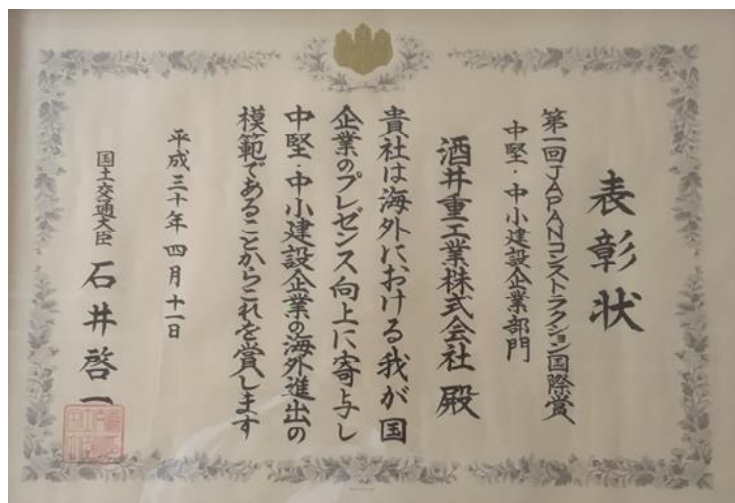 表彰状
第一回JAPANコンストラクション国際賞
中堅・中小建設企業部門
酒井重工業株式会社 殿
貴社は海外における我が国
企業のプレゼンス向上に寄与し
中堅・中小建設企業の海外進出の
模範であることからこれを賞します
平成三十年四月十一日
国土交通大臣 石井啓一